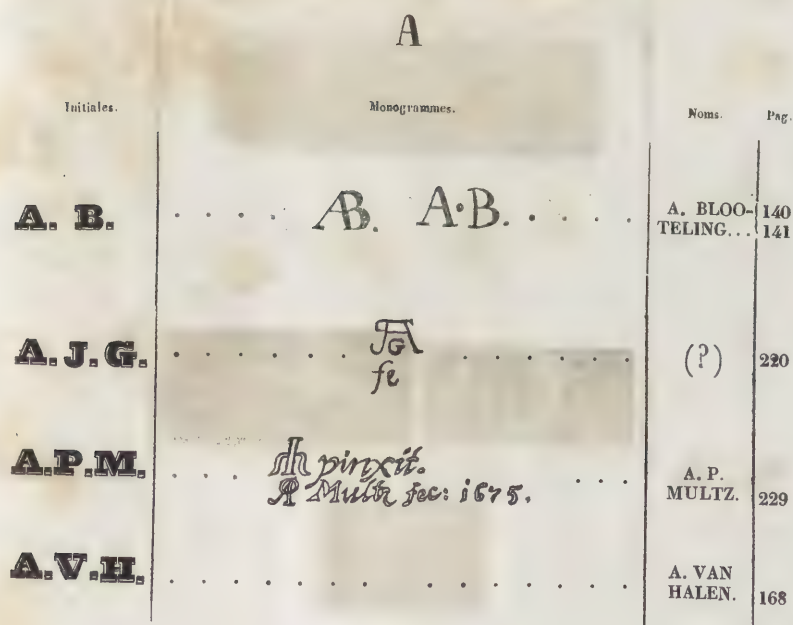 A
Initiales. Monogrammes. Noms. Pag.
A. B. . . . . AB. A·B. . . . . . A. BLOO- 140
TELING... 141
A.J.G. . . . . . . AJG . . . . . . (?) 220
fe
A.P.M. . . . pinxit. . . . A. P.
AP Multz fec: 1675. MULTZ. 229
A.V.H. . . . . . . . . . . . . . A. VAN
HALEN. 168